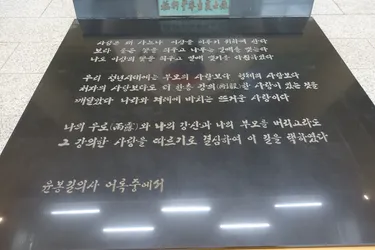 사람은 왜 사느냐 이상을 이루기 위하여 산다
보라 풀은 꽃을 피우고 나무는 열매를 맺는다
나도 이상의 꽃을 피우고 열매 맺기를 다짐하였다
우리 청년시대에는 부모의 사랑보다 형제의 사랑보다
처자의 사랑보다도 더 한층 강의(剛毅)한 사랑이 있는 것을
깨달았다 나라와 겨레에 바치는 뜨거운 사랑이다
나의 우로(雨露)와 나의 강산과 나의 부모를 버리고라도
그 강의한 사랑을 따르기로 결심하여 이 길을 택하였다
윤봉길의사 어록중에서